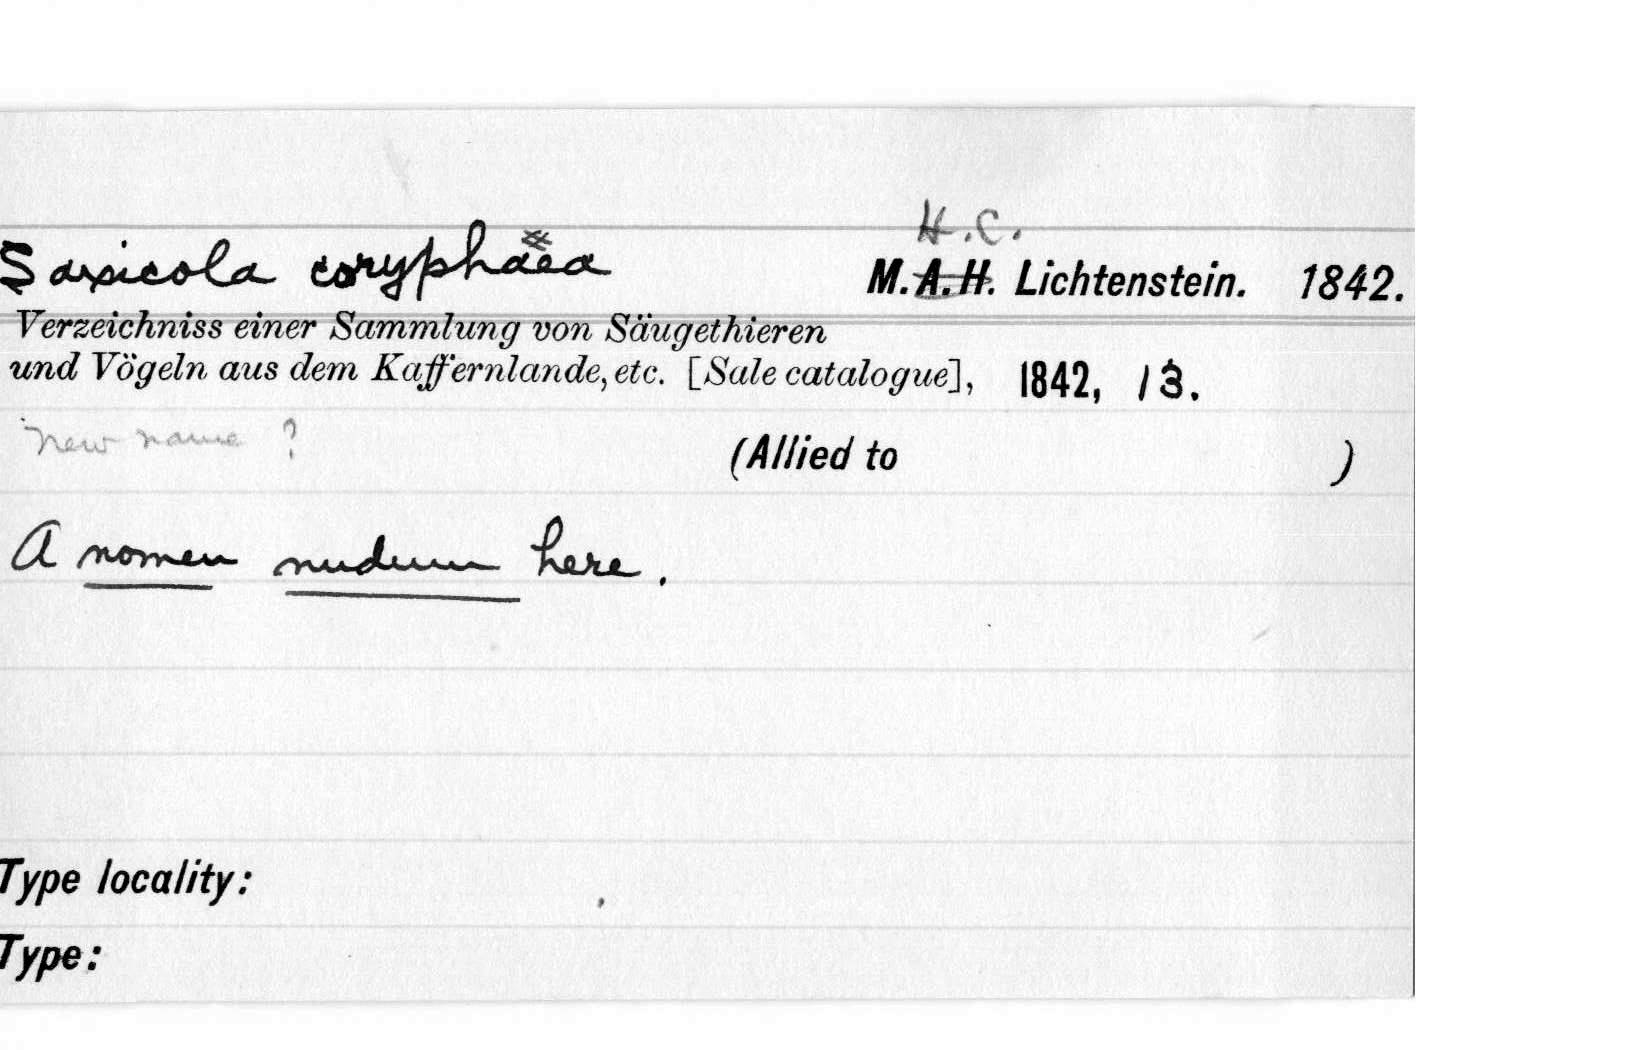 H.C.
Saxicola coryphaea M.A.H. Lichtenstein. 1842.
Verzeichniss einer Sammlung von Säugethieren
und Vögeln aus dem Kaffernlande, etc. [Sale catalogue], 1842, 13.
New name ? (Allied to )
A nomen nudum here.
Type locality:
Type: